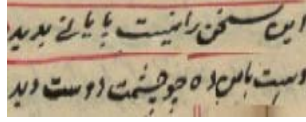 این سخن را نیست پایانی پدید
دست باس ده چو چشمت دوست دید